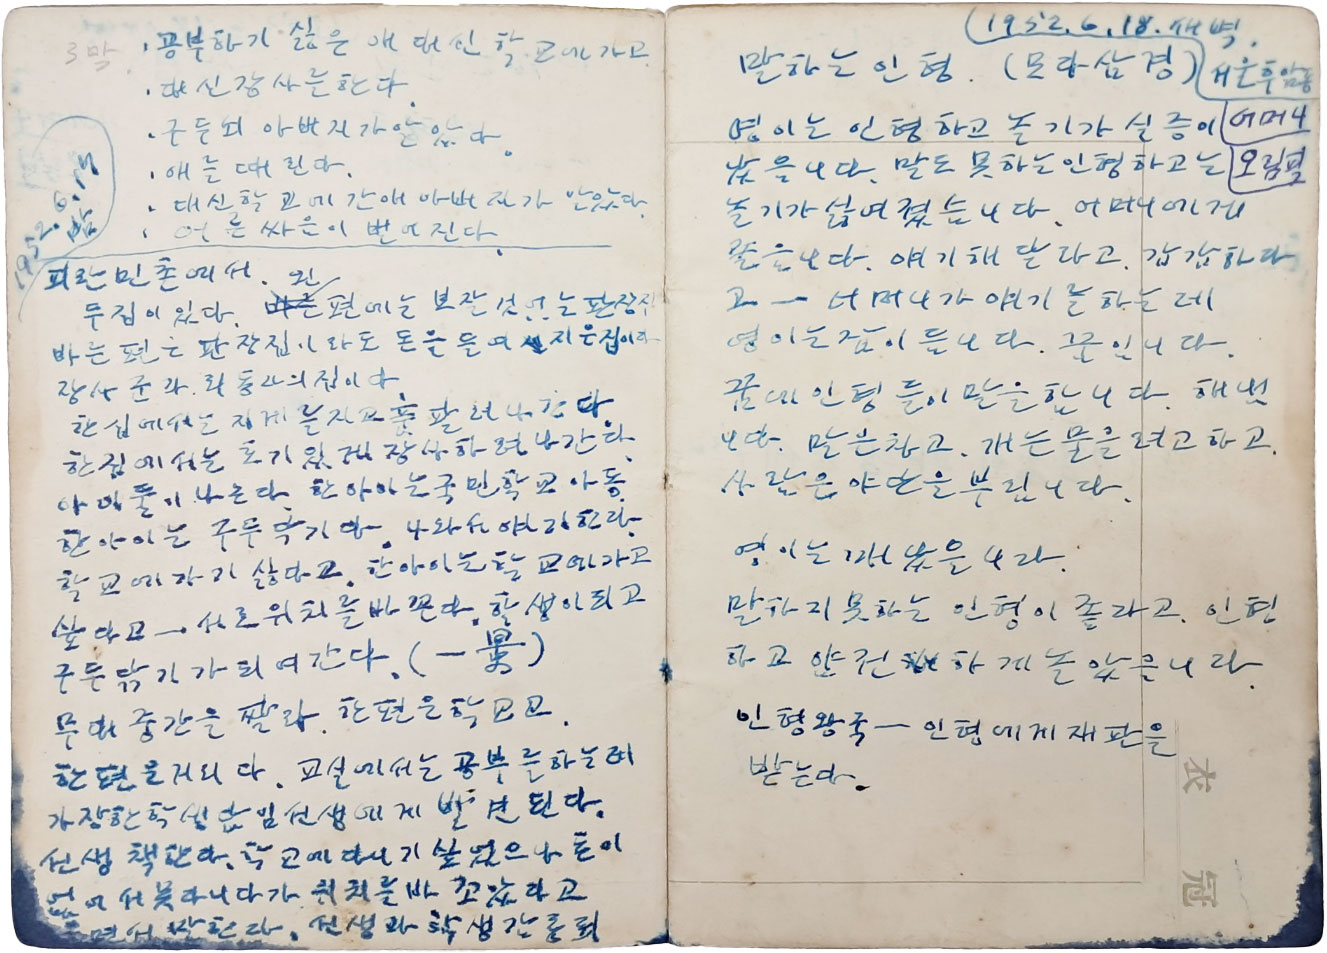 3막. · 공부하기 싫은 애 대신 학교에 가고
· 대신 장사를 한다.
· 구두쇠 아버지가 알았다.
· 애를 때린다.
· 대신 학교에 간 애 아버지가 알았다.
· 어른 싸움이 벌어진다.
1952.6. 밤
피란민촌에서. 왼
두집이 있다. 편에는 보잘 것 없는 판장집
바른 편은 판장집이라도 돈을 들여 지은집이다
장사꾼과 회통과의 집이다
한 집에서는 지게를 지고 품 팔러 나간다.
한집에서는 호기있게 장사하러 나간다.
아이 둘이 나온다. 한 아이는 국민학교 아동.
한 아이는 구두닦기다. 나와서 얘기한다.
학교에 가기 싫다고. 한 아이는 학교에 가고
싶다고 — 서로 위치를 바꾼다. 학생이 되고
구두닦기가 되여 간다. (一景)
무대 중간을 짤라. 한편은 학교고.
한편은 거리다. 교실에서는 공부를 하는데
가장한 학생 담임선생에게 발견된다.
선생 책한다. 학교에 다니기 싶었으나 돈이
없어서 못 다니다가 위치를 바꾸었다고
울면서 말한다. 선생과 학생간
(1952.6.18. 새벽.
말하는 인형. (모라삼경)
서울 후암동
영이는 인형하고 놀기가 실증이
어머니
났읍니다. 말도 못하는 인형하고는
오림필
놀기가 싫여졌습니다. 어머니에게
졸릅니다. 얘기해 달라고. 갑갑하다
고 — 어머니가 얘기를 하는데
영이는 잠이 듭니다. 꿈입니다.
꿈에 인형들이 말을 합니다.
니다. 말은 차고. 개는 물을려고 하고.
사람은 야단을 부립니다.
영이는 깨났읍니다.
말하지 못하는 인형이 좋라고. 인형
하고 얌전하게 놀았읍니다.
인형왕국 — 인형에게 재판을
받는다.
衣
冠